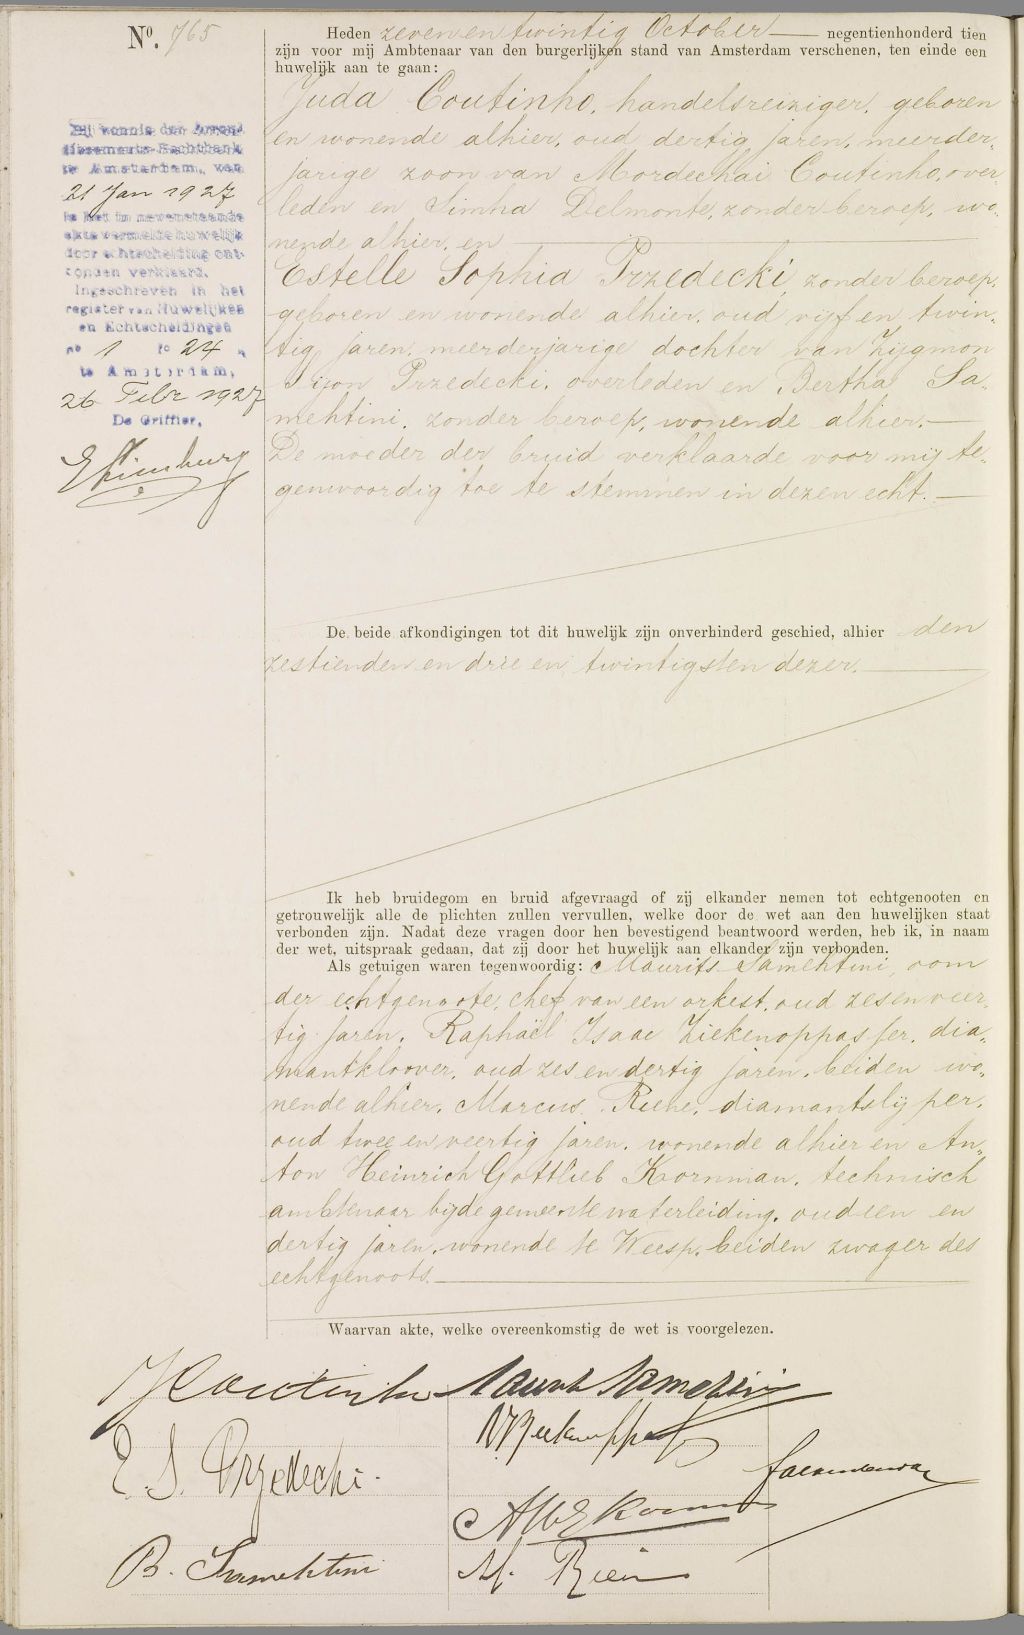 No. 765
Heden zeven en twintig October negentienhonderd tien
zijn voor mij Ambtenaar van den burgerlijken stand van Amsterdam verschenen, ten einde een
huwelijk aan te gaan:
Juda Coutinho, handelsreiziger, geboren
en wonende alhier, oud dertig jaren, meerder-
jarige zoon van Mordechai Coutinho, over-
leden en Simha Delmonte, zonder beroep, wo-
nende alhier, en
Estelle Sophia Przedecki, zonder beroep,
geboren en wonende alhier, oud vijf en twin-
tig jaren, meerderjarige dochter van Zijgmon
Przedecki, overleden en Bertha Sa-
mehtini, zonder beroep, wonende alhier.
De moeder der bruid verklaarde voor mij te-
genwoordig toe te stemmen in dezen echt.
Bij vonnis der Arron-
dissements-Rechtbank
te Amsterdam, van
21 Jan 1927
is het in nevenstaande
akte vermelde huwelijk
door echtscheiding ont-
bonden verklaard.
Ingeschreven in het
register van Huwelijken
en Echtscheidingen
no 1 fo 24
te Amsterdam,
26 Febr 1927
De Griffier,
De beide afkondigingen tot dit huwelijk zijn onverhinderd geschied, alhier den
zestienden en drie en twintigsten dezer.
Ik heb bruidegom en bruid afgevraagd of zij elkander nemen tot echtgenooten en
getrouwelijk alle de plichten zullen vervullen, welke door de wet aan den huwelijken staat
verbonden zijn. Nadat deze vragen door hen bevestigend beantwoord werden, heb ik, in naam
der wet, uitspraak gedaan, dat zij door het huwelijk aan elkander zijn verbonden.
Als getuigen waren tegenwoordig: Maurits Samehtini, oom
der echtgenoote, chef van een orkest, oud zes en veer-
tig jaren, Raphaël Isaac Ziekenoppasser, dia-
mantkloover, oud zes en dertig jaren, beiden wo-
nende alhier, Marcus Riene, diamantslijper,
oud twee en veertig jaren, wonende alhier en An-
ton Heinrich Gottlieb Kornman, technisch
ambtenaar bij de gemeente waterleiding, oud een en
dertig jaren, wonende te Weesp, beiden zwager des
echtgenoots.
Waarvan akte, welke overeenkomstig de wet is voorgelezen.
J Coutinho
Maurits Samehtini
E. S. Przedecki.
B. Samehtini